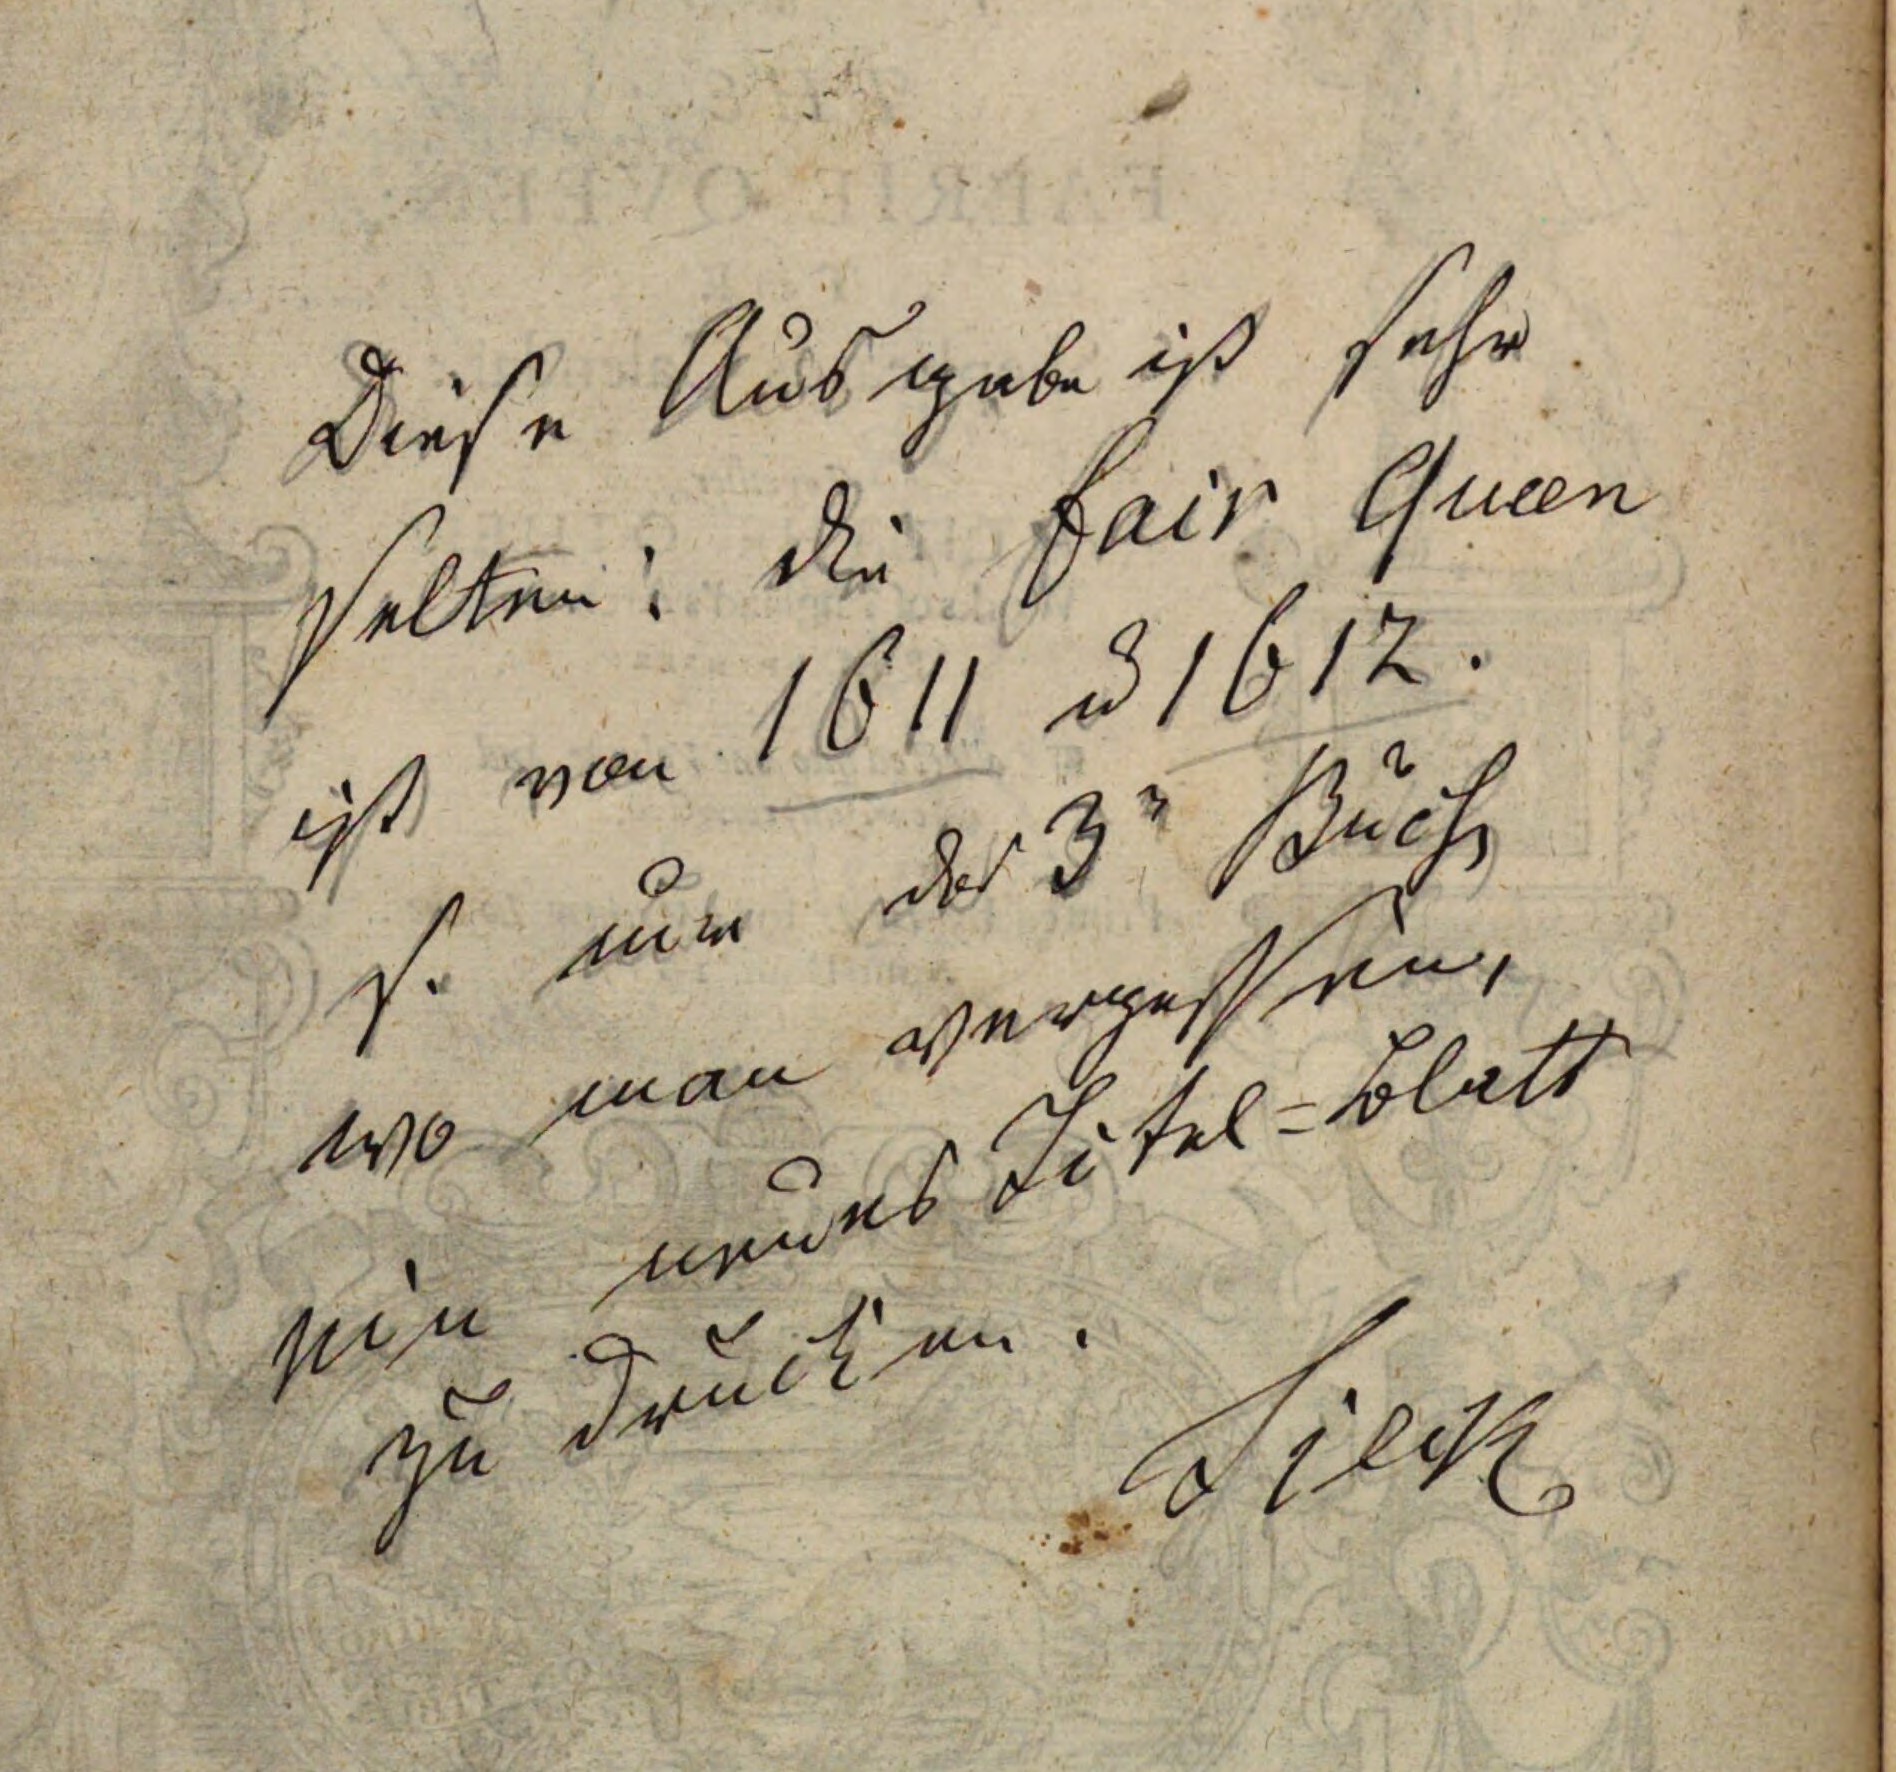 Diese Ausgabe ist sehr
selten: die fair Queen
ist von 1611 u 1612.
s. nur das 3n Buch,
wo man vergessen,
ein neues Titel=blatt
zu drucken.
Tieck